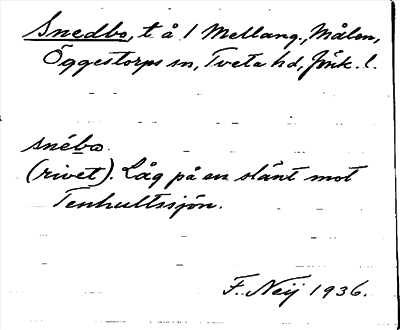 Snedbo, t å 1 Mellang., Målen,
Öggestorps sn, Tveta hd, Jönk. l.
snébo
(rivet). Låg på en slänt mot
Tenhultssjön.
F. Neij 1936.